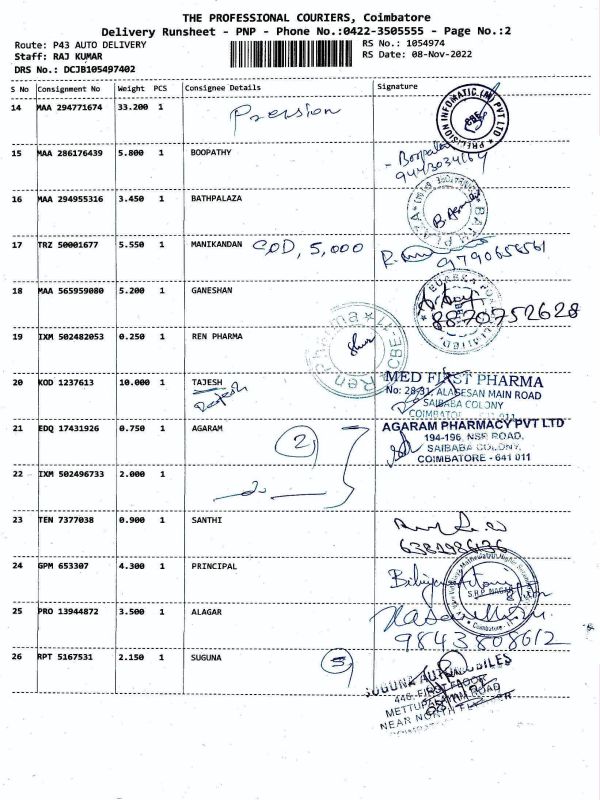 THE PROFESSIONAL COURIERS, Coimbatore
Delivery Runsheet - PNP - Phone No.:0422-3505555 - Page No.:2
Route: P43 AUTO DELIVERY
Staff: RAJ KUMAR
DRS No.: DCJB105497402
RS No.: 1054974
RS Date: 08-Nov-2022
S No Consignment No Weight PCS Consignee Details Signature
14 MAA 294771674 33.200 1
PRECISION INFOMATIC (M) PVT LTD
CBE
15 MAA 286176439 5.800 1 BOOPATHY
16 MAA 294955316 3.450 1 BATHPALAZA
17 TRZ 50001677 5.550 1 MANIKANDAN COD, 5,000
18 MAA 565959080 5.200 1 GANESHAN
8870752628
19 IXM 502482053 0.250 1 REN PHARMA
Ren Pharma
CBE-11
20 KOD 1237613 10.000 1 TAJESH
MED FIRST PHARMA
No: 28-31, ALAGESAN MAIN ROAD
SAIBABA COLONY
COIMBATORE - 641 011
21 EDQ 17431926 0.750 1 AGARAM 2
AGARAM PHARMACY PVT LTD
194-196, NSR ROAD,
SAIBABA COLONY,
COIMBATORE - 641 011
22 IXM 502496733 2.000 1
23 TEN 7377038 0.900 1 SANTHI
24 GPM 653307 4.300 1 PRINCIPAL
25 PRO 13944872 3.500 1 ALAGAR
9843808612
26 RPT 5167531 2.150 1 SUGUNA
SUGUNA AUTOMOBILES
446, FIRST FLOOR
METTUPALAYAM ROAD
NEAR NORTH